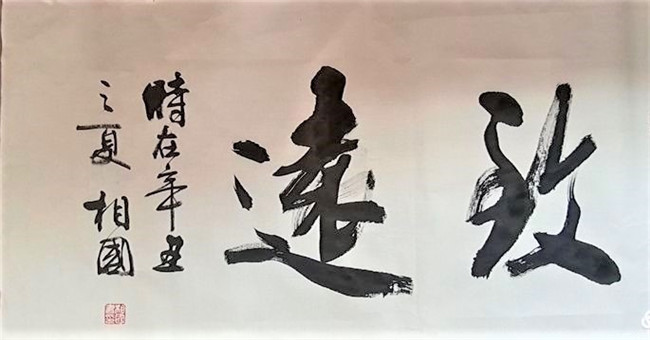 致遠
時在辛丑
之夏 相國